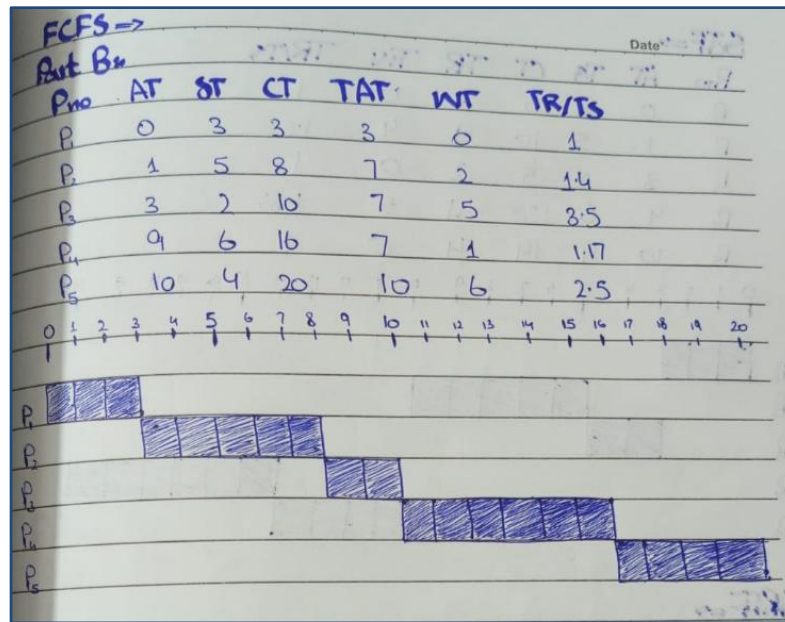 FCFS =>
Date
Part B:
Pno AT ST CT TAT WT TR/TS
P1 0 3 3 3 0 1
P2 1 5 8 7 2 1.4
P3 3 2 10 7 5 3.5
P4 9 6 16 7 1 1.17
P5 10 4 20 10 6 2.5
0 1 2 3 4 5 6 7 8 9 10 11 12 13 14 15 16 17 18 19 20
P1
P2
P3
P4
P5